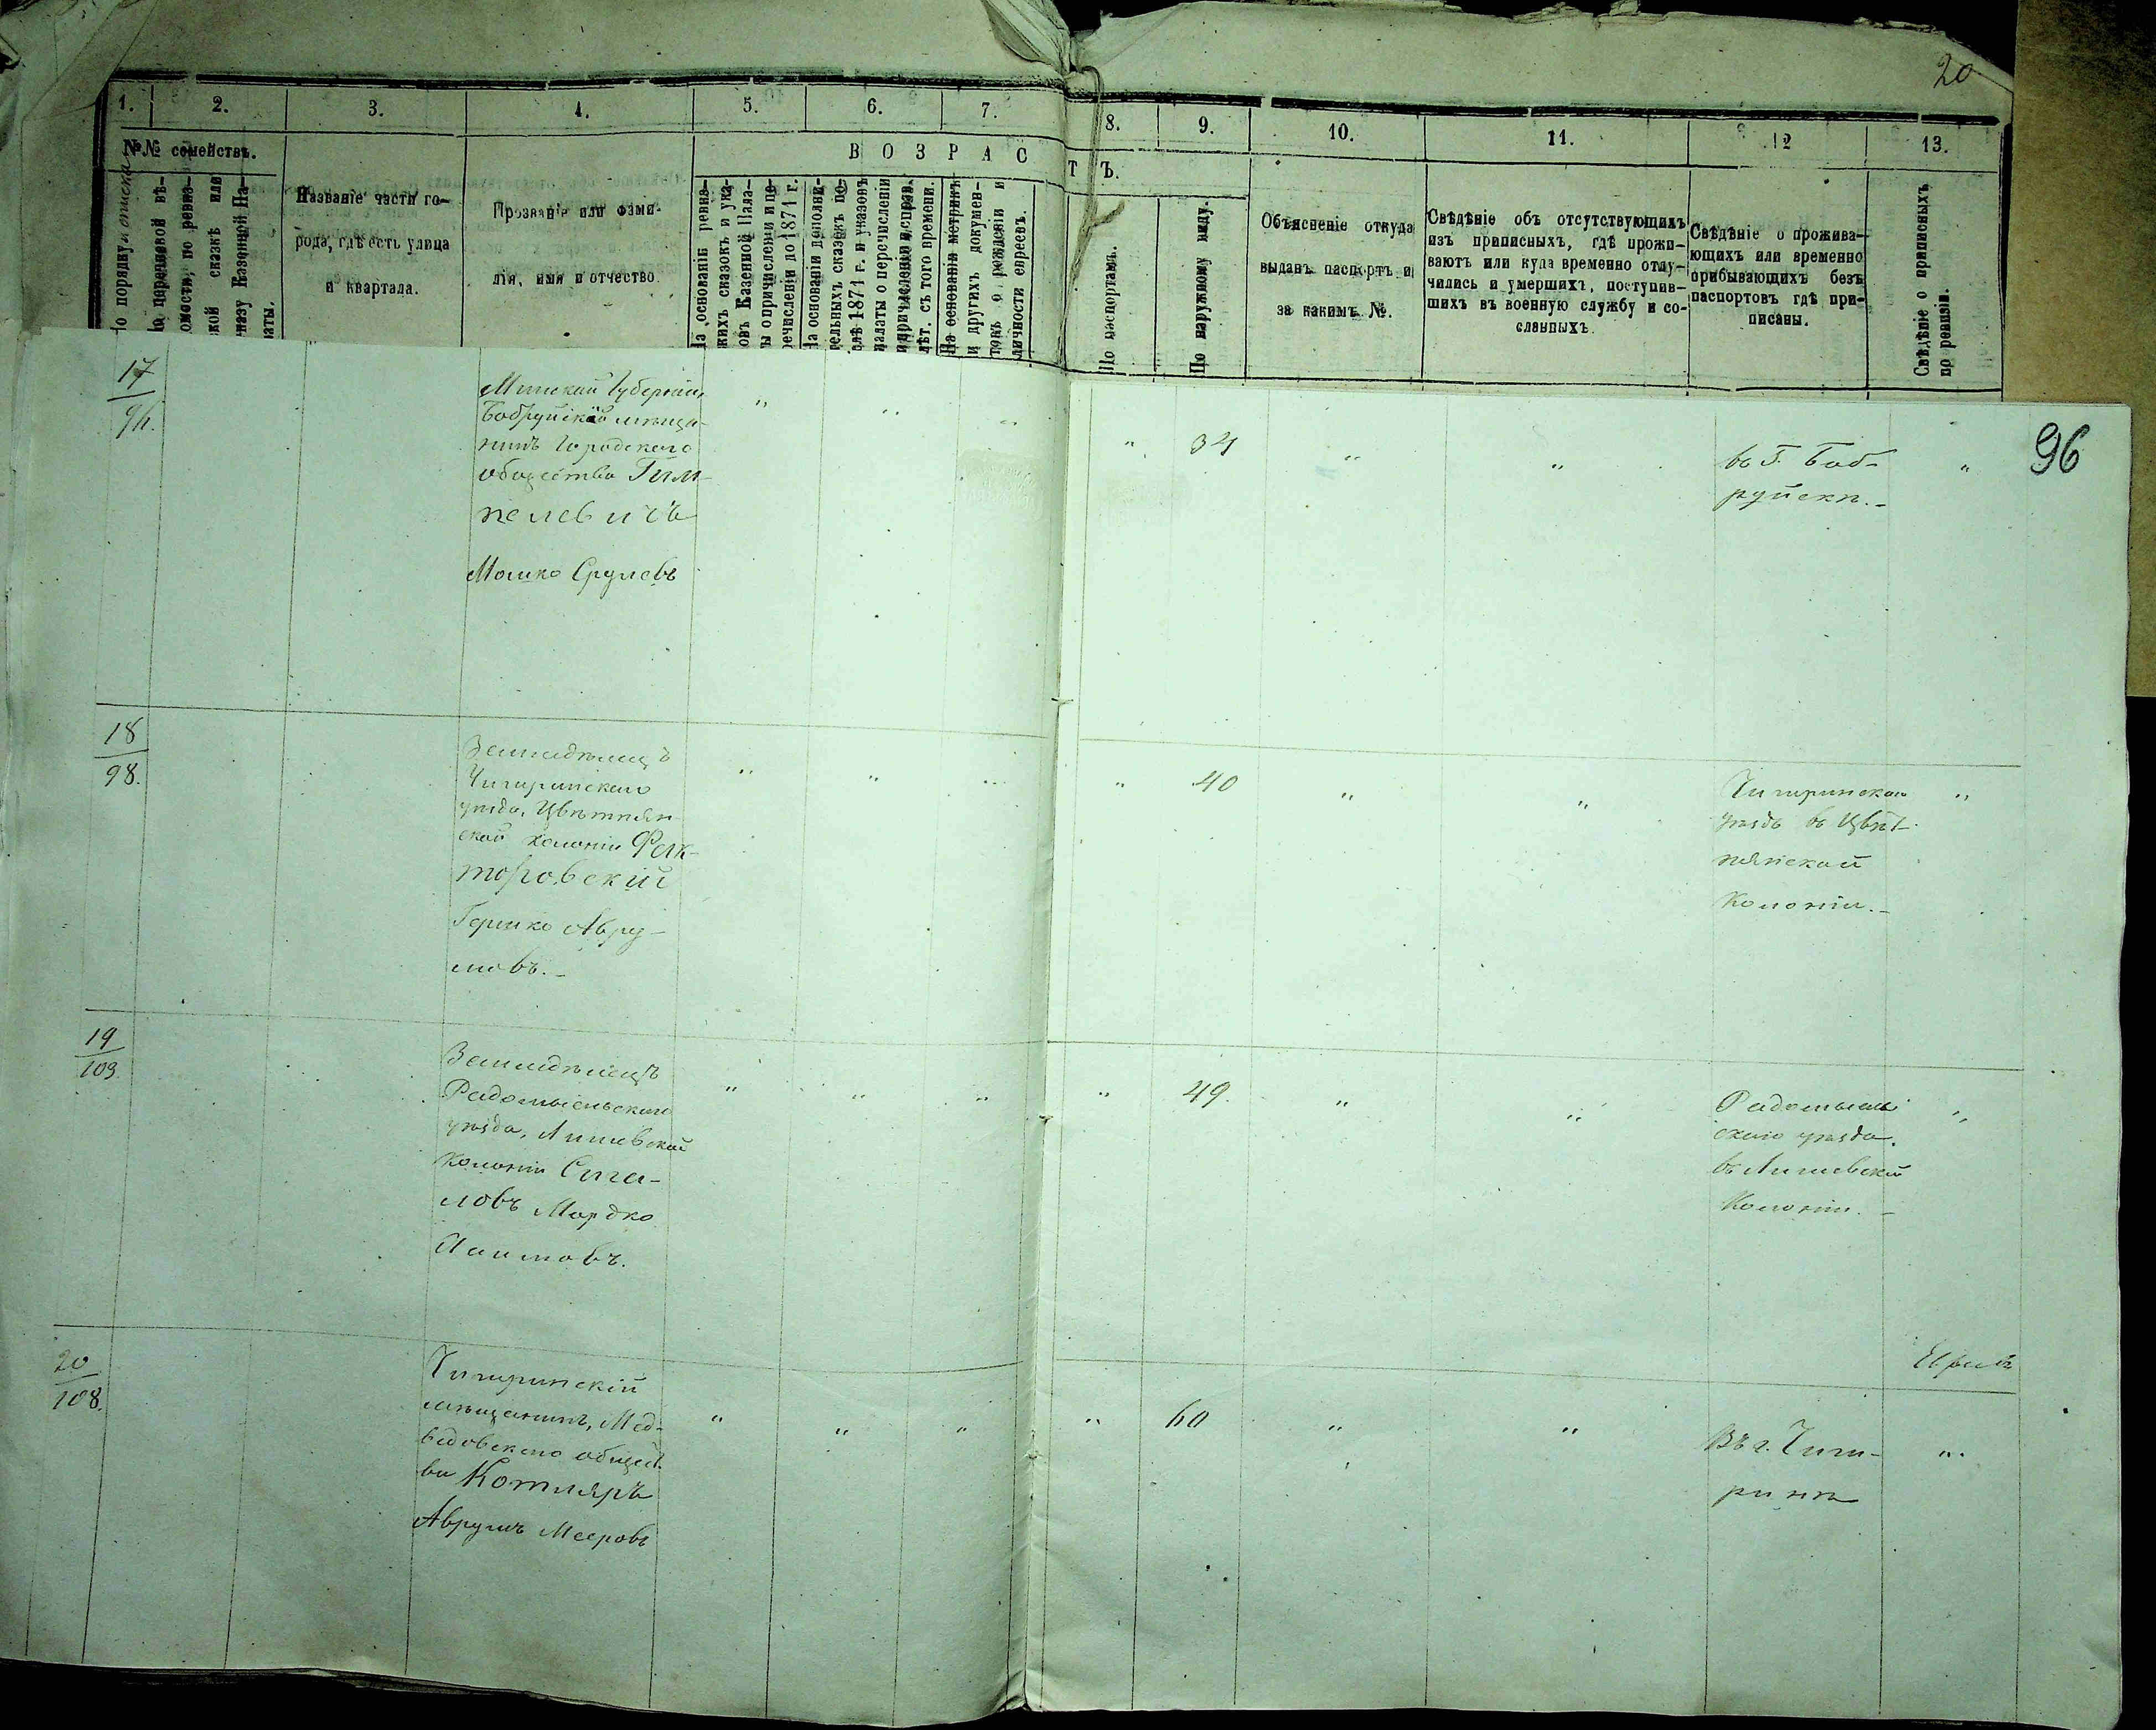 20
1. 2. 3. 4. 5. 6. 7. 8. 9. 10. 11. 12 13.
№№ семействъ.
По порядку описка
По переписной вѣ-
домости, по ревиз-
ской сказкѣ или
указу Казенной Па-
латы.
Названіе части го-
рода, гдѣ есть улица
и квартала.
Прозваніе или фами-
лія, имя и отчество
ВОЗРАСТЪ.
На основаніи ревиз-
скихъ сказокъ и ука-
зовъ Казенной Пала-
ты о причисленіи и пе-
речисленіи до 1871 г.
На основаніи дополни-
тельныхъ сказокъ по-
слѣ 1871 г. и указовъ
палаты о перечисленіи
и причисленіи и исправ.
лѣт. съ того времени.
На основаніи метрикъ
и других докумен-
товъ о рожденіи и
личности евреевъ.
По паспортамъ.
По наружному виду.
Объясненіе откуда
выданъ паспортъ и
за какимъ №.
Свѣдѣніе объ отсутствующихъ
изъ приписныхъ, гдѣ прожи-
ваютъ или куда временно отлу-
чились и умершихъ, поступив-
шихъ въ военную службу и со-
сланныхъ.
Свѣдѣніе о прожива-
ющихъ или временно
прибывающихъ безъ
паспортовъ гдѣ при-
писаны.
Свѣдѣніе о приписныхъ
по ревизіи.
96
17
Минской Губерніи,
Бобруйскій мѣща-
нинъ Городскаго
общества Гим-
пелевичъ
Мошко Срулевъ
" " " " 34 " "
въ Г. Боб-
руйскѣ.-
"
18
98.
Земледѣлецъ
Чигиринскаго
уѣзда, Цвѣтнян-
ской колоніи Фак-
торовскій
Гершко Авру-
мовъ.-
" " " " 40 " "
Чигиринскаго
уѣзда въ Цвѣт-
нянской
Колоніи.-
"
19
103.
Земледѣлецъ
Радомысльскаго
уѣзда, Личевской
Колоніи Сига-
ловъ Мордко
Хаимовъ.
" " " " 49. " "
Радомысль
скаго уѣзда.
въ Личевской
Колоніи.-
"
20
108.
Чигиринскій
мѣщанинъ, Мед-
ведовскаго общест
ва Котляръ
Аврумъ Мееровъ
" " " " 60 " "
Въ г. Чиги-
ринѣ
"